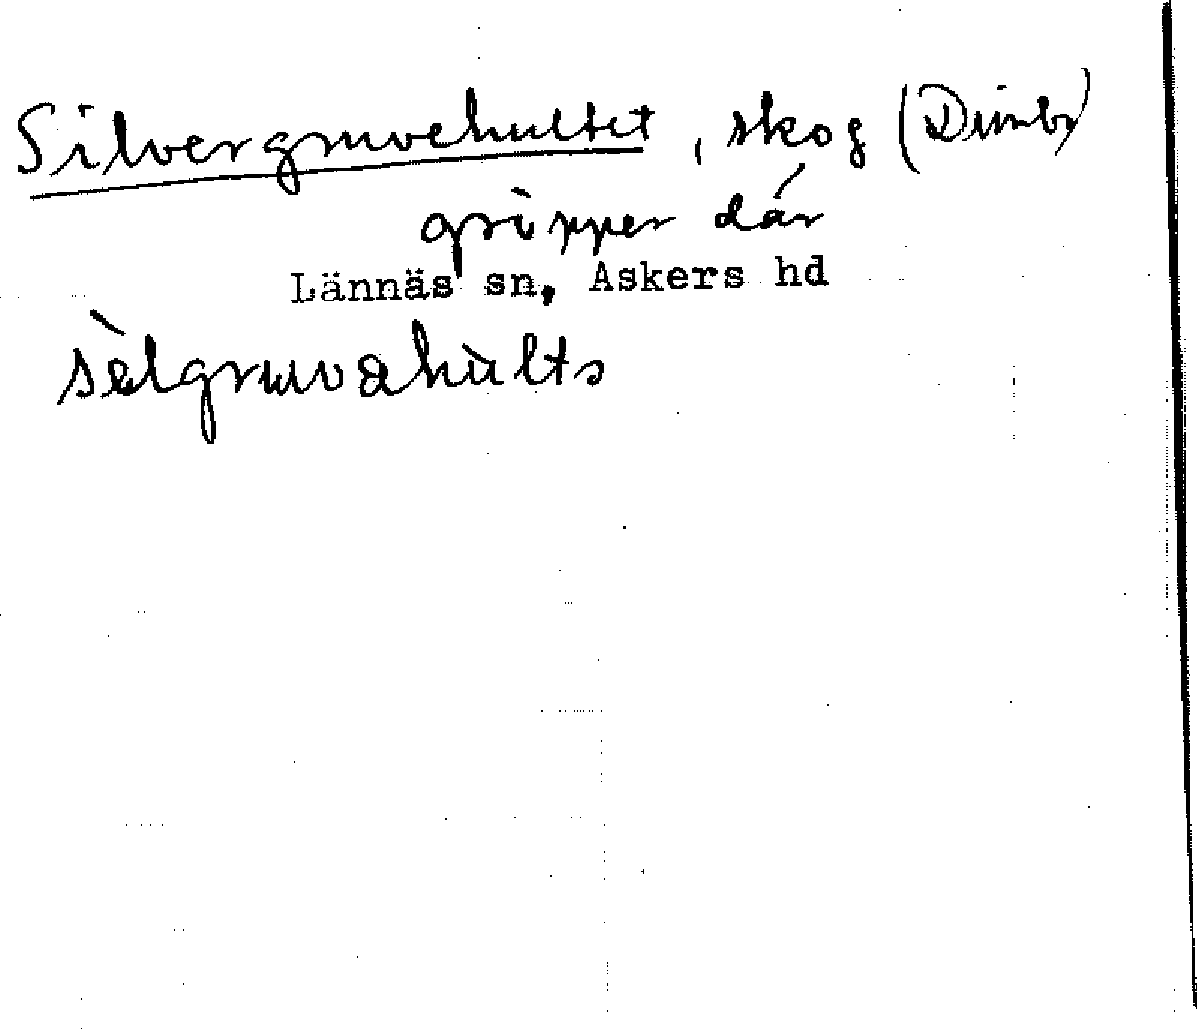 Silvergruvehultet, skog (Dimbr)
gròpper där
Lännäs sn, Askers hd
sèlgruvahùlts